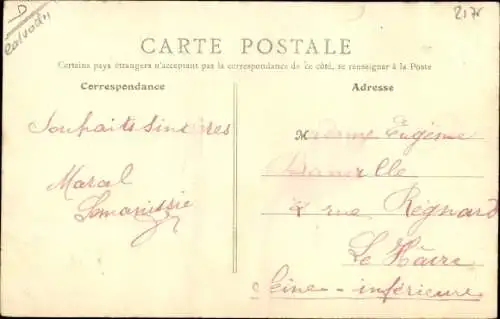 D
Calvados
2176
CARTE POSTALE
Certains pays étrangers n'acceptant pas la correspondance de ce côté, se renseigner à la Poste
Correspondance
Souhaits sincères
Marcel
Adresse
Madame Eugénie
2 rue Régnard
Le Hâvre
Seine-inférieure